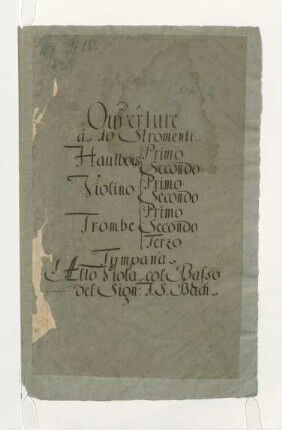 Ouverture
a 10 Stromenti
Hautbois Primo
Secondo
Violino Primo
Secondo
Primo
Trombe Secondo
Terzo
Tympana
Alto Viola col Basso
del Sign: J. S. Bach